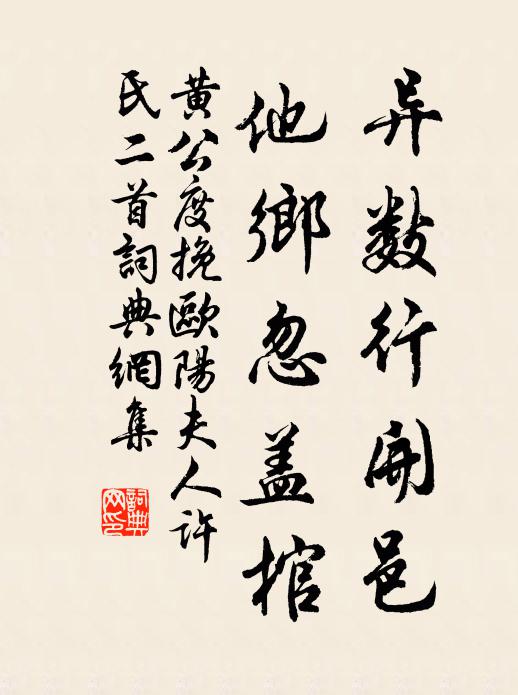 异数行開邑
他鄉忽盖棺
黄公度挽歐陽夫人許
民二首詞典網集
詞典网印